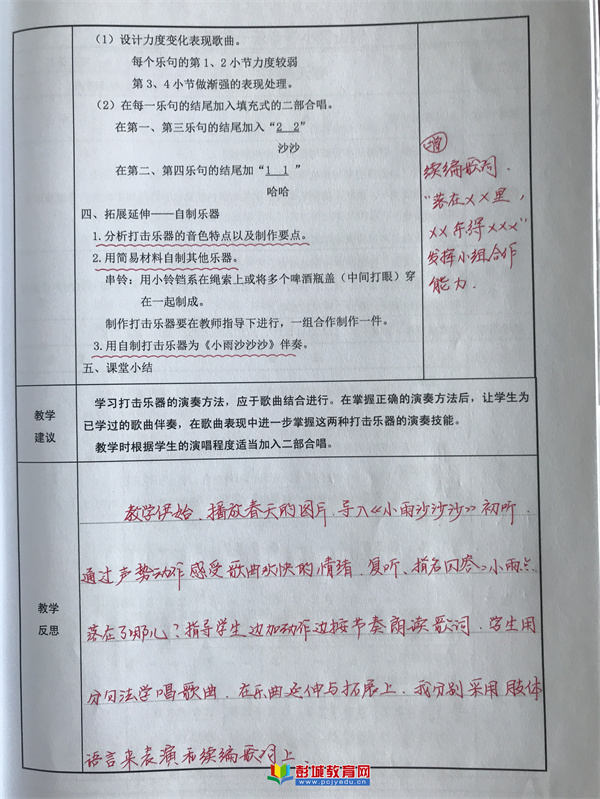 （1）设计力度变化表现歌曲。
每个乐句的第1、2小节力度较弱
第3、4小节做渐强的表现处理。
（2）在每一乐句的结尾加入填充式的二部合唱。
在第一、第三乐句的结尾加入“2 2”
沙沙
在第二、第四乐句的结尾加“1 1 ”
哈哈
四、拓展延伸——自制乐器
1.分析打击乐器的音色特点以及制作要点。
2.用简易材料自制其他乐器。
串铃：用小铃铛系在绳索上或将多个啤酒瓶盖（中间打眼）穿
在一起制成。
制作打击乐器要在教师指导下进行，一组合作制作一件。
3.用自制打击乐器为《小雨沙沙沙》伴奏。
五、课堂小结
增
续编歌词.
“落在××里，
××乐得×××”
发挥小组合作
能力.
教学
建议
学习打击乐器的演奏方法，应于歌曲结合进行。在掌握正确的演奏方法后，让学生为
已学过的歌曲伴奏，在歌曲表现中进一步掌握这两种打击乐器的演奏技能。
教学时根据学生的演唱程度适当加入二部合唱。
教学
反思
教学伊始、播放春天的图片.导入《小雨沙沙沙》初听.
通过声势动作感受歌曲欢快的情绪.复听、指名回答：小雨点
落在了哪儿？指导学生边加动作边按节奏朗读歌词.学生用
分句法学唱歌曲.在乐曲延伸与拓展上.我分别采用肢体
语言来表演和续编歌词上、
彭城教育网
www.pcjyedu.cn